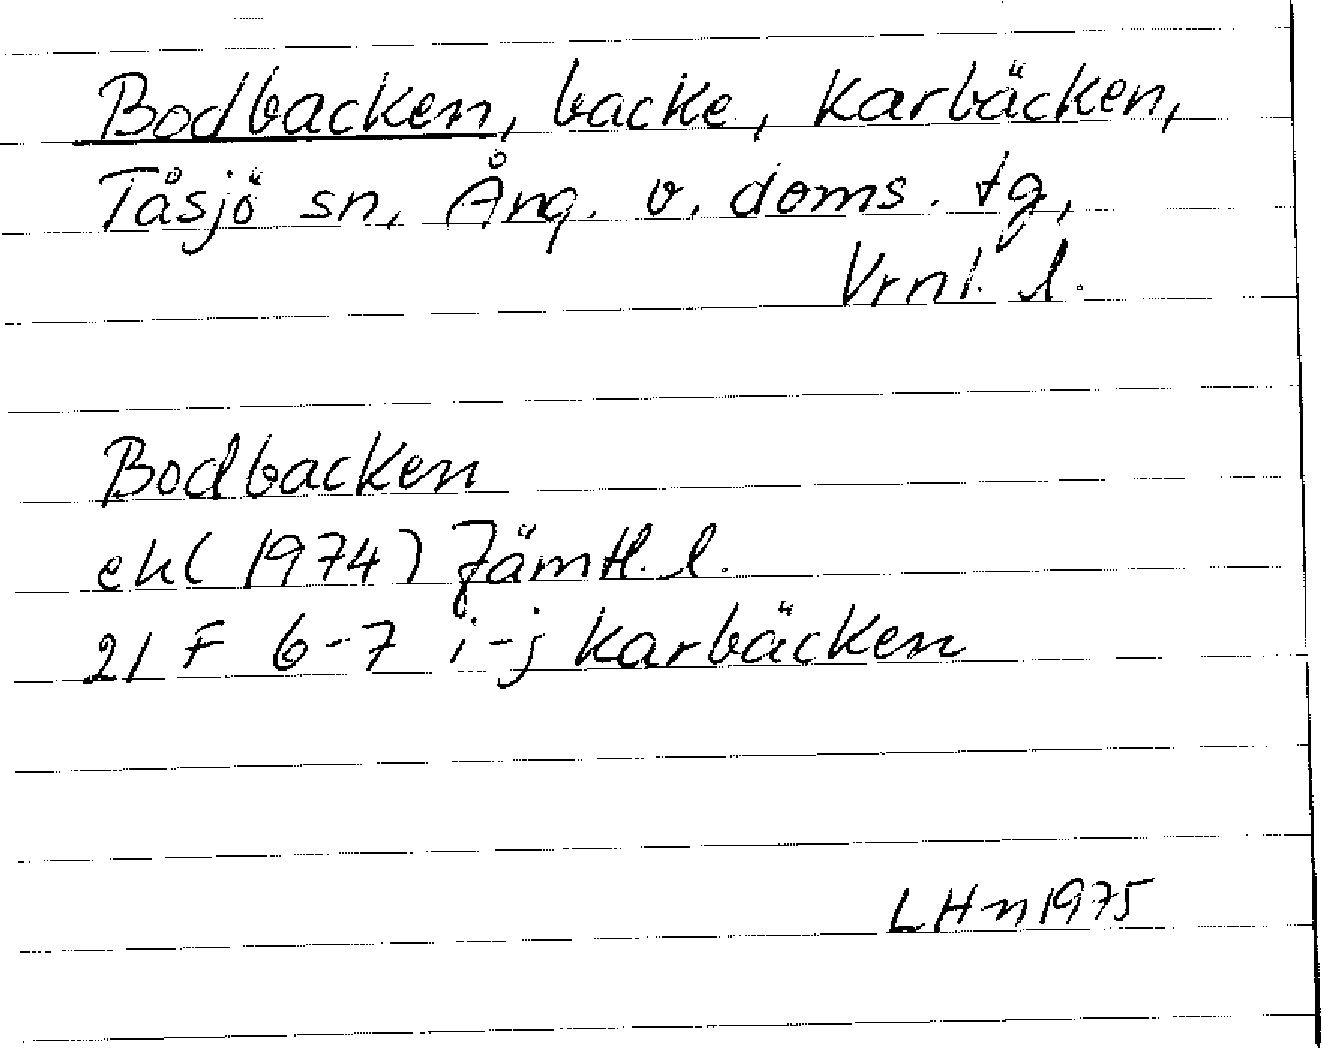 Bodbacken, backe, Karbäcken,
Tåsjö sn, Ång. v. doms. tg,
Vrnl. l.
Bodbacken
ek (1974) Jämtl. l.
21 F 6-7 i-j Karbäcken
LHn 1975